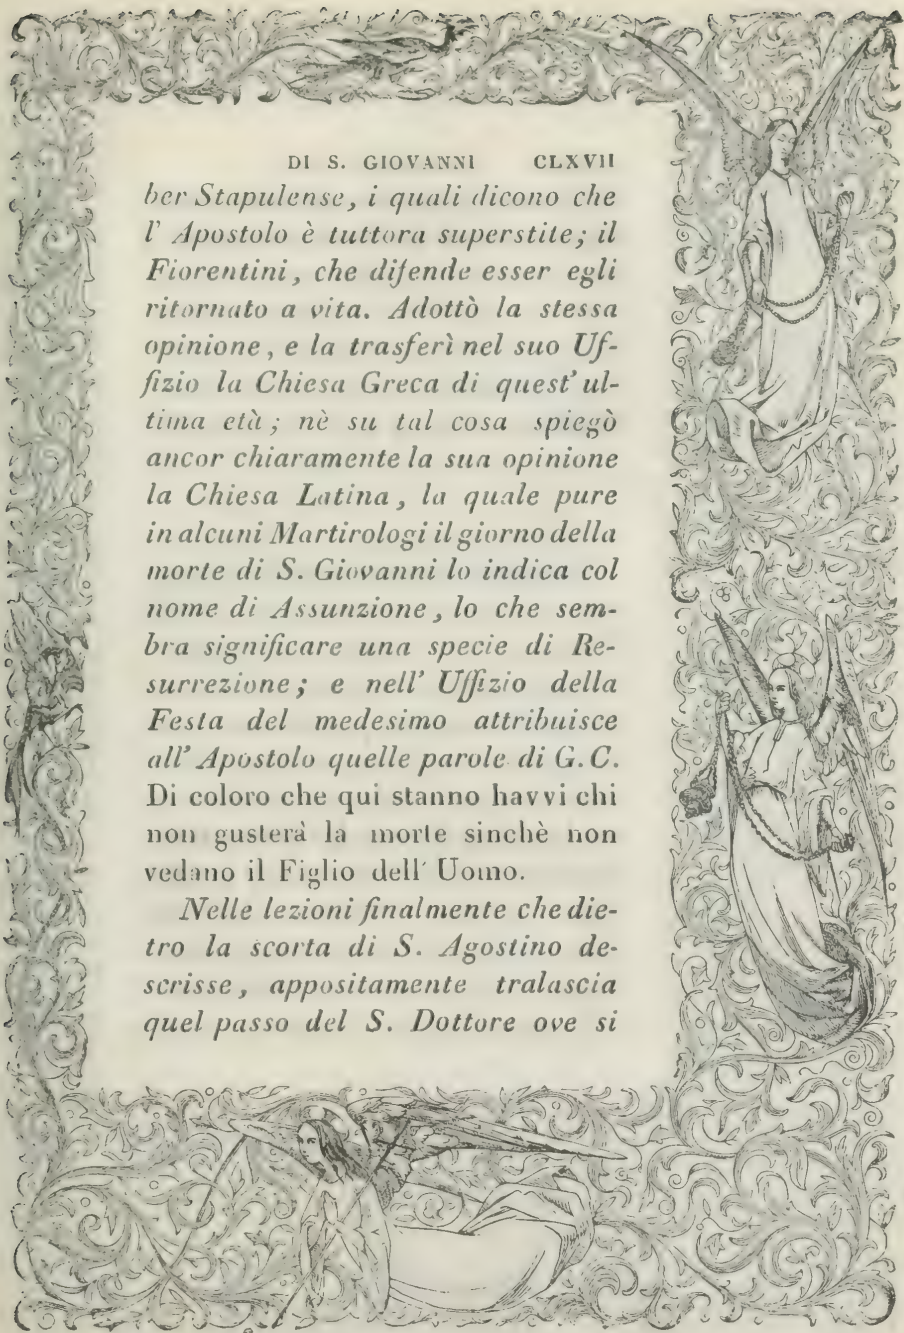 DI S. GIOVANNI CLXVII
ber Stapulense, i quali dicono che
l' Apostolo è tuttora superstite; il
Fiorentini, che difende esser egli
ritornato a vita. Adottò la stessa
opinione, e la trasferì nel suo Uf-
fizio la Chiesa Greca di quest' ul-
tima età; nè su tal cosa spiegò
ancor chiaramente la sua opinione
la Chiesa Latina, la quale pure
in alcuni Martirologi il giorno della
morte di S. Giovanni lo indica col
nome di Assunzione, lo che sem-
bra significare una specie di Re-
surrezione; e nell' Uffizio della
Festa del medesimo attribuisce
all' Apostolo quelle parole di G. C.
Di coloro che qui stanno havvi chi
non gusterà la morte sinchè non
vedano il Figlio dell' Uomo.
Nelle lezioni finalmente che die-
tro la scorta di S. Agostino de-
scrisse, appositamente tralascia
quel passo del S. Dottore ove si